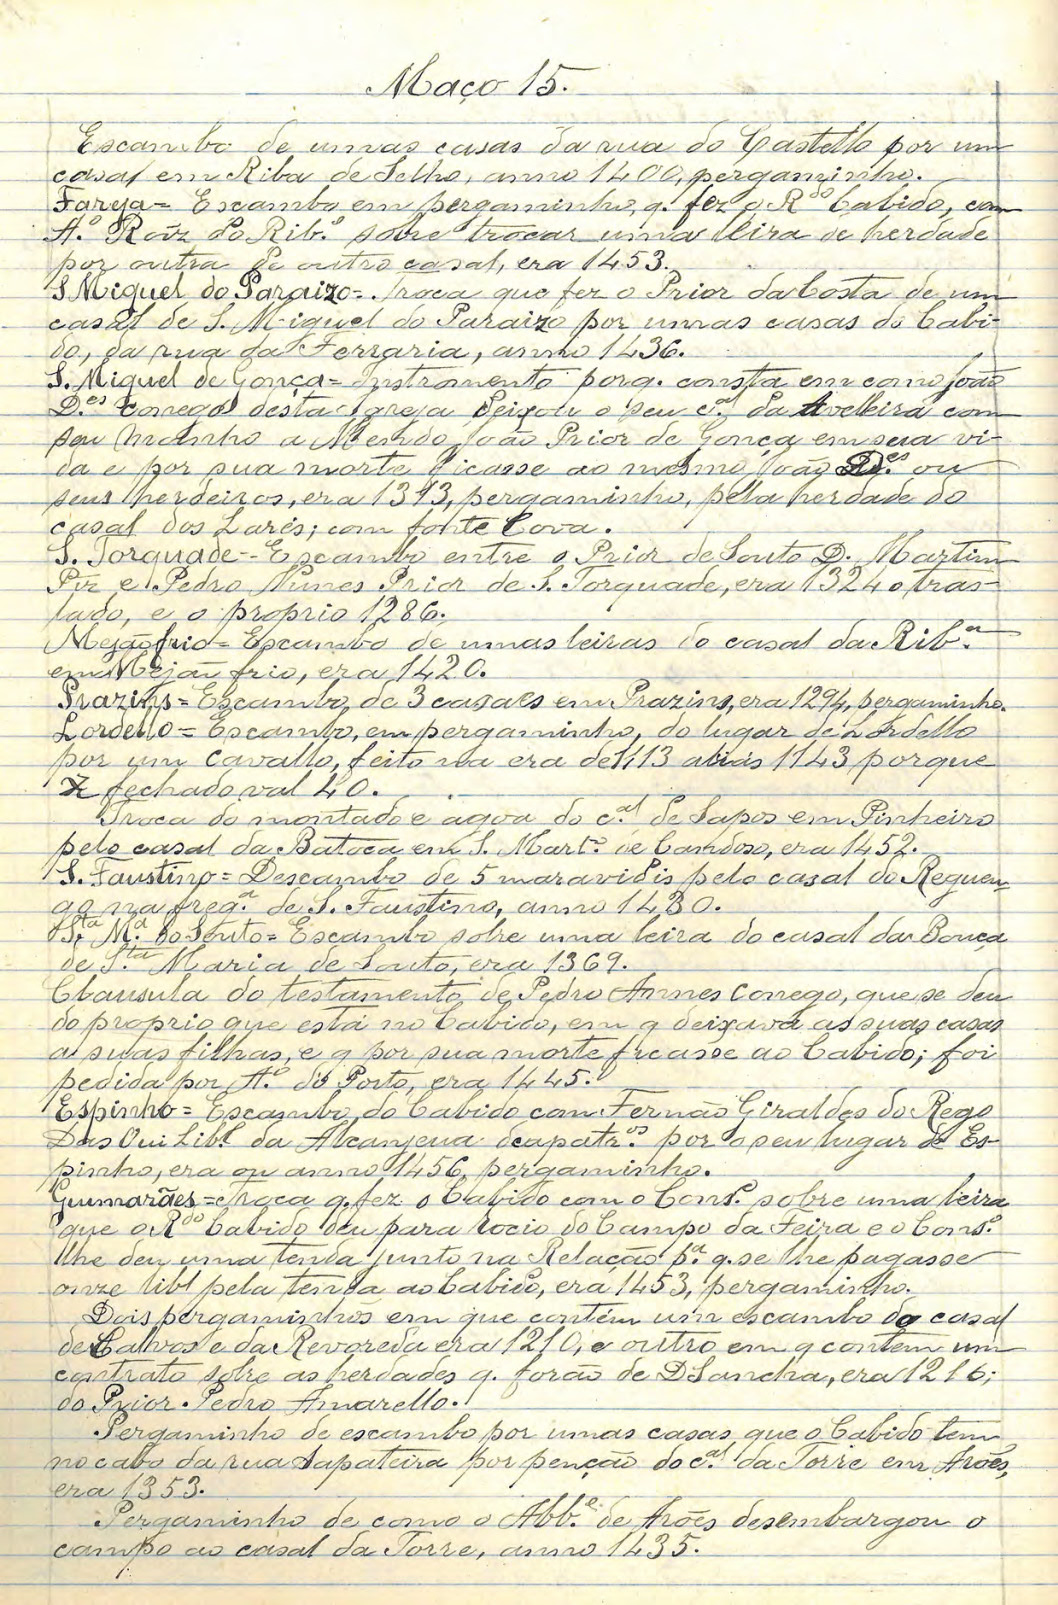 Maço 15.
Escambo de umas casas da rua do Castello por um
casal em Riba de Selho, anno 1400, pergaminho.
Fareja = Escambo em pergaminho, q. fez o R.do Cabido, com
A.º Roiz do Rib.º sobre trocar uma leira de herdade
por outra de outro casal, era 1453.
S. Miguel do Paraizo = Troca que fez o Prior da Costa de um
casal de S. Miguel do Paraizo por umas casas do Cabi-
do, da rua da Ferraria, anno 1436.
S. Miguel de Gonça = Instromento porq. consta em como João
D.es conego desta Igreja deixou o seu c.al da Aveleira com
seu moinho a Mendo João Prior de Gonça em sua vi-
da e por sua morte ficasse ao mesmo João D.es ou
seus herdeiros, era 1313, pergaminho, pela herdade do
casal dos Lares; com fonte Cova.
S. Torquade - Escambo entre o Prior de Souto D. Martim
Piz e Pedro Nunes Prior de S. Torquade, era 1324 o tras-
lado, e o proprio 1286.
Mejãofrio = Escambo de umas leiras do casal da Rib.a
em Mejão frio, era 1420.
Prazins = Escambo de 3 casaes em Prazins, era 1294, pergaminho.
Lordello = Escambo, em pergaminho, do lugar de Lordello
por um cavallo, feito na era de 1113 aliás 1143 porque
X fechado val 40.
Troca do montado e agoa do c.al de Sapos em Pinheiro
pelo casal da Batoca em S. Mart.º de Candoso, era 1452.
S. Faustino = Descambo de 5 maravidis pelo casal do Reguen-
go na freg.a de S. Faustino, anno 1430.
S.ta M.a do Souto = Escambo sobre uma leira do casal da Bouça
de S.ta Maria de Souto, era 1369.
Clausula do testamento de Pedro Annes conego, que se deu
do proprio que está no Cabido, em q deixava as suas casas
a suas filhas, e q por sua morte ficasse ao Cabido; foi
pedida por A.º do Porto, era 1445.
Espinho = Escambo do Cabido com Fernão Giraldes do Rego
das Oui Lib.l da Alcanjeua por o seu lugar de Es-
pinho, era ou anno 1456, pergaminho.
Guimarães = Troca q. fez o Cabido com o Cons.º sobre uma leira
que o R.do Cabido deu para rocio do Campo da Feira e o Cons.º
lhe deu uma tenda junto na Relação p.a q. se lhe pagasse
onze libl pela tenda ao Cabido, era 1453, pergaminho.
Dois pergaminhos em que contém um escambo do casal
de Calvos e da Revoreda era 1210, e outro em q contem um
contrato sobre as herdades q. forão de D Sancha, era 1216;
do Prior Pedro Amarello.
Pergaminho de escambo por umas casas que o Cabido tem
no cabo da rua Sapateira por penção do c.al da Torre em Arões,
era 1353.
Pergaminho de como o Abb.e de Arões desembargou o
campo ao casal da Torre, anno 1435.